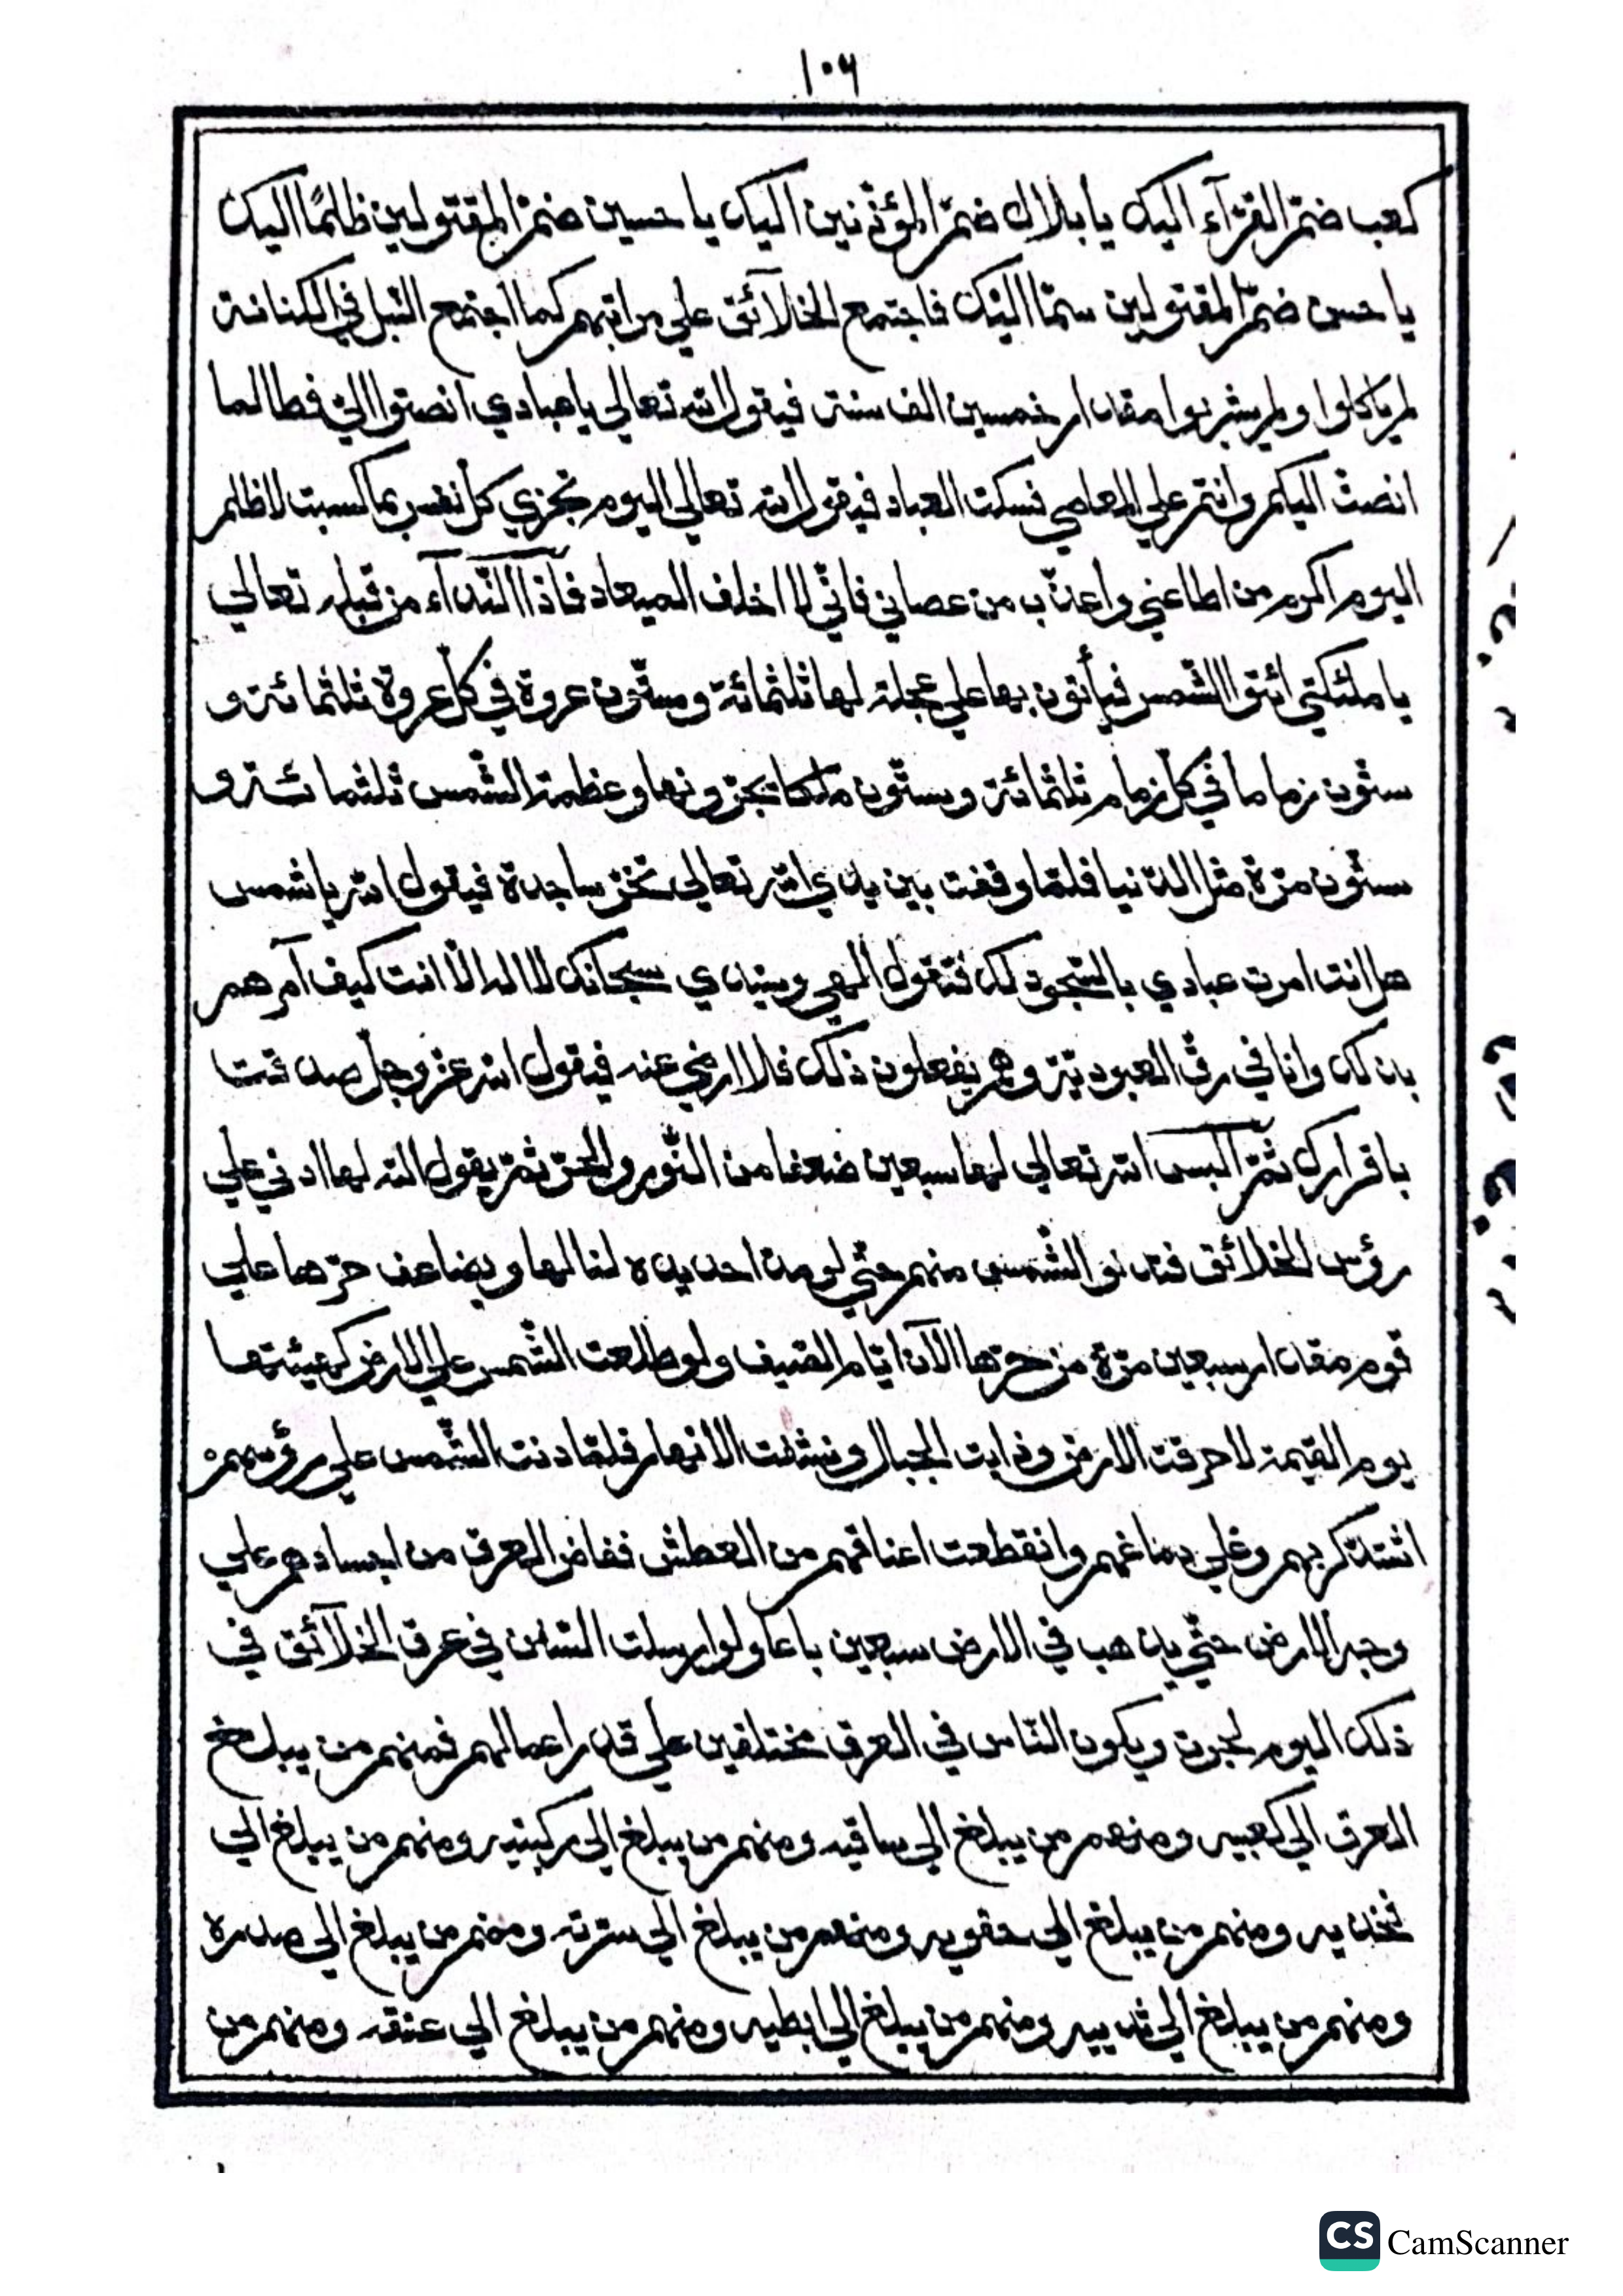 ١٠٦
كعب ضمّ القرّآء اليك يا بلال ضمّ المؤذّنين اليك يا حسين ضمّ المقتولين ظلمًا اليك
يا حسن ضمّ المقتولين سمّا اليك فاجتمع الخلآئق علي مراتبهم كما اجتمع النّبل في الكنانة
لم ياكلوا ولم يشربوا مقدار خمسين الف سنة فيقول الله تعالي يا عبادي انصتوا اليّ فطالما
انصتّ اليكم وانتم علي المعاصي فسكت العباد فيقول الله تعالي اليوم تجزي كل نفس بما كسبت لا ظلم
اليوم اكرم من اطاعني واعذّب من عصاني فانّي لا اخلف الميعاد فاذا النّدآء من قبله تعالي
يا ملئكتي ائتوا الشّمس فيأتون بها علي عجلة لها ثلثمائة وستّون عروة في كلّ عروة ثلثمائة و
ستّون زماما في كلّ زمام ثلثمائة وستّون ملكا يجرّونها وعظمة الشّمس ثلثمائة و
ستّون مرّة مثل الدّنيا فلمّا وقفت بين يدي الله تعالي تخرّ ساجدة فيقول الله يا شمس
هل انت امرت عبادي بالسّجود لك فتقول الهي وسيدي سبحانك لا اله الّا انت كيف آمرهم
بذلك وانا في رقّ العبوديّة وهم يفعلون ذلك فلا ارضي عنه فيقول الله عزّ وجلّ صدقت
باقرارك ثمّ البس الله تعالي لها سبعين ضعفا من النّور والحرّ ثمّ يقول الله لها ادني علي
رؤس الخلائق فتدنو الشّمس منهم حتّي لو مدّ احد يده لنالها ويضاعف حرّها علي
قوم مقدار سبعين مرّة من حرّها الآن ايّام الصّيف ولو طلعت الشّمس علي الارض كهيئتها
يوم القيمة لاحرقت الارض وذابت الجبال ونشفت الانهار فلمّا دنت الشّمس علي رؤسهم
اشتدّ كربهم وغلي دماغهم وانقطعت اعناقهم من العطش ففاض العرق من اجسادهم علي
وجه الارض حتّي يذهب في الارض سبعين باعا ولو ارسلت السّفن في عرق الخلآئق في
ذلك اليوم لجرت ويكون النّاس في العرق مختلفين علي قدر اعمالهم فمنهم من يبلغ
العرق الي كعبيه ومنهم من يبلغ الي ساقيه ومنهم من يبلغ الي ركبتيه ومنهم من يبلغ الي
فخذيه ومنهم من يبلغ الي حقويه ومنهم من يبلغ الي سرّته ومنهم من يبلغ الي صدره
ومنهم من يبلغ الي ثدييه ومنهم من يبلغ الي ابطيه ومنهم من يبلغ الي عنقه ومنهم من
CS CamScanner